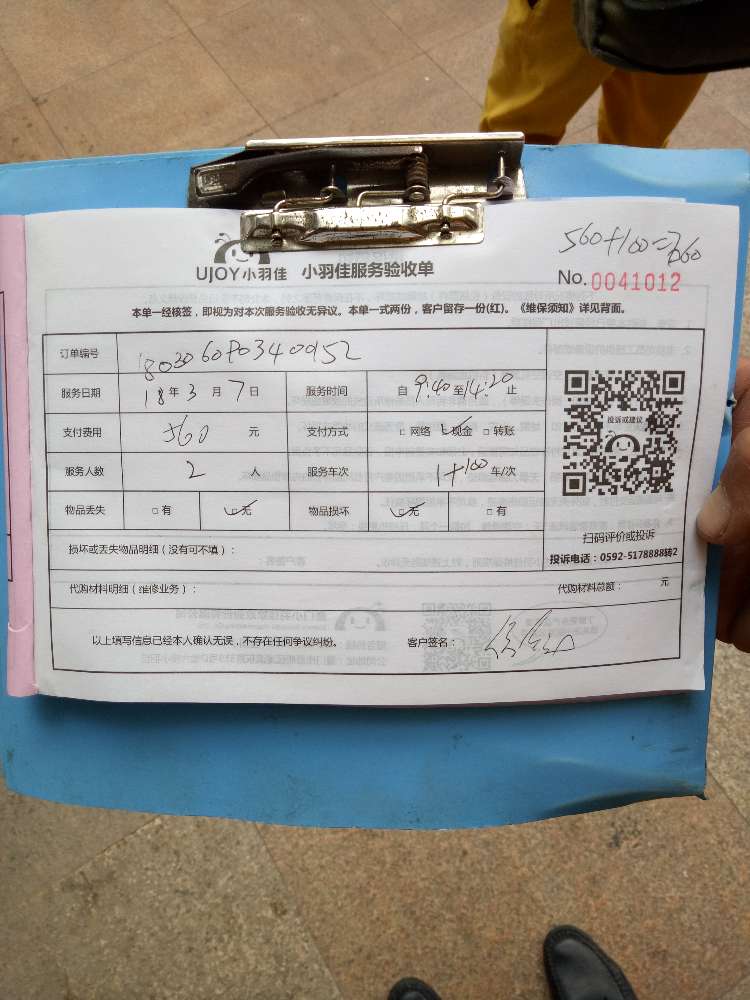 560+100=660
UJOY小羽佳 小羽佳服务验收单
No. 0041012
本单一经核签，即视为对本次服务验收无异议。本单一式两份，客户留存一份(红)。《维保须知》详见背面。
订单编号
服务日期 18年3月7日 服务时间 自9:40至14:20止
支付费用 560元 支付方式 □网络 □现金 □转账
投诉或建议
服务人数 2人 服务车次 1+100车/次
物品丢失 □有 □无 物品损坏 □无 □有
扫码评价或投诉
损坏或丢失物品明细（没有可不填）：
投诉电话：0592-5178888转2
代购材料明细（维修业务）： 代购材料总额： 元
以上填写信息已经本人确认无误，不存在任何争议纠纷。 客户签名：